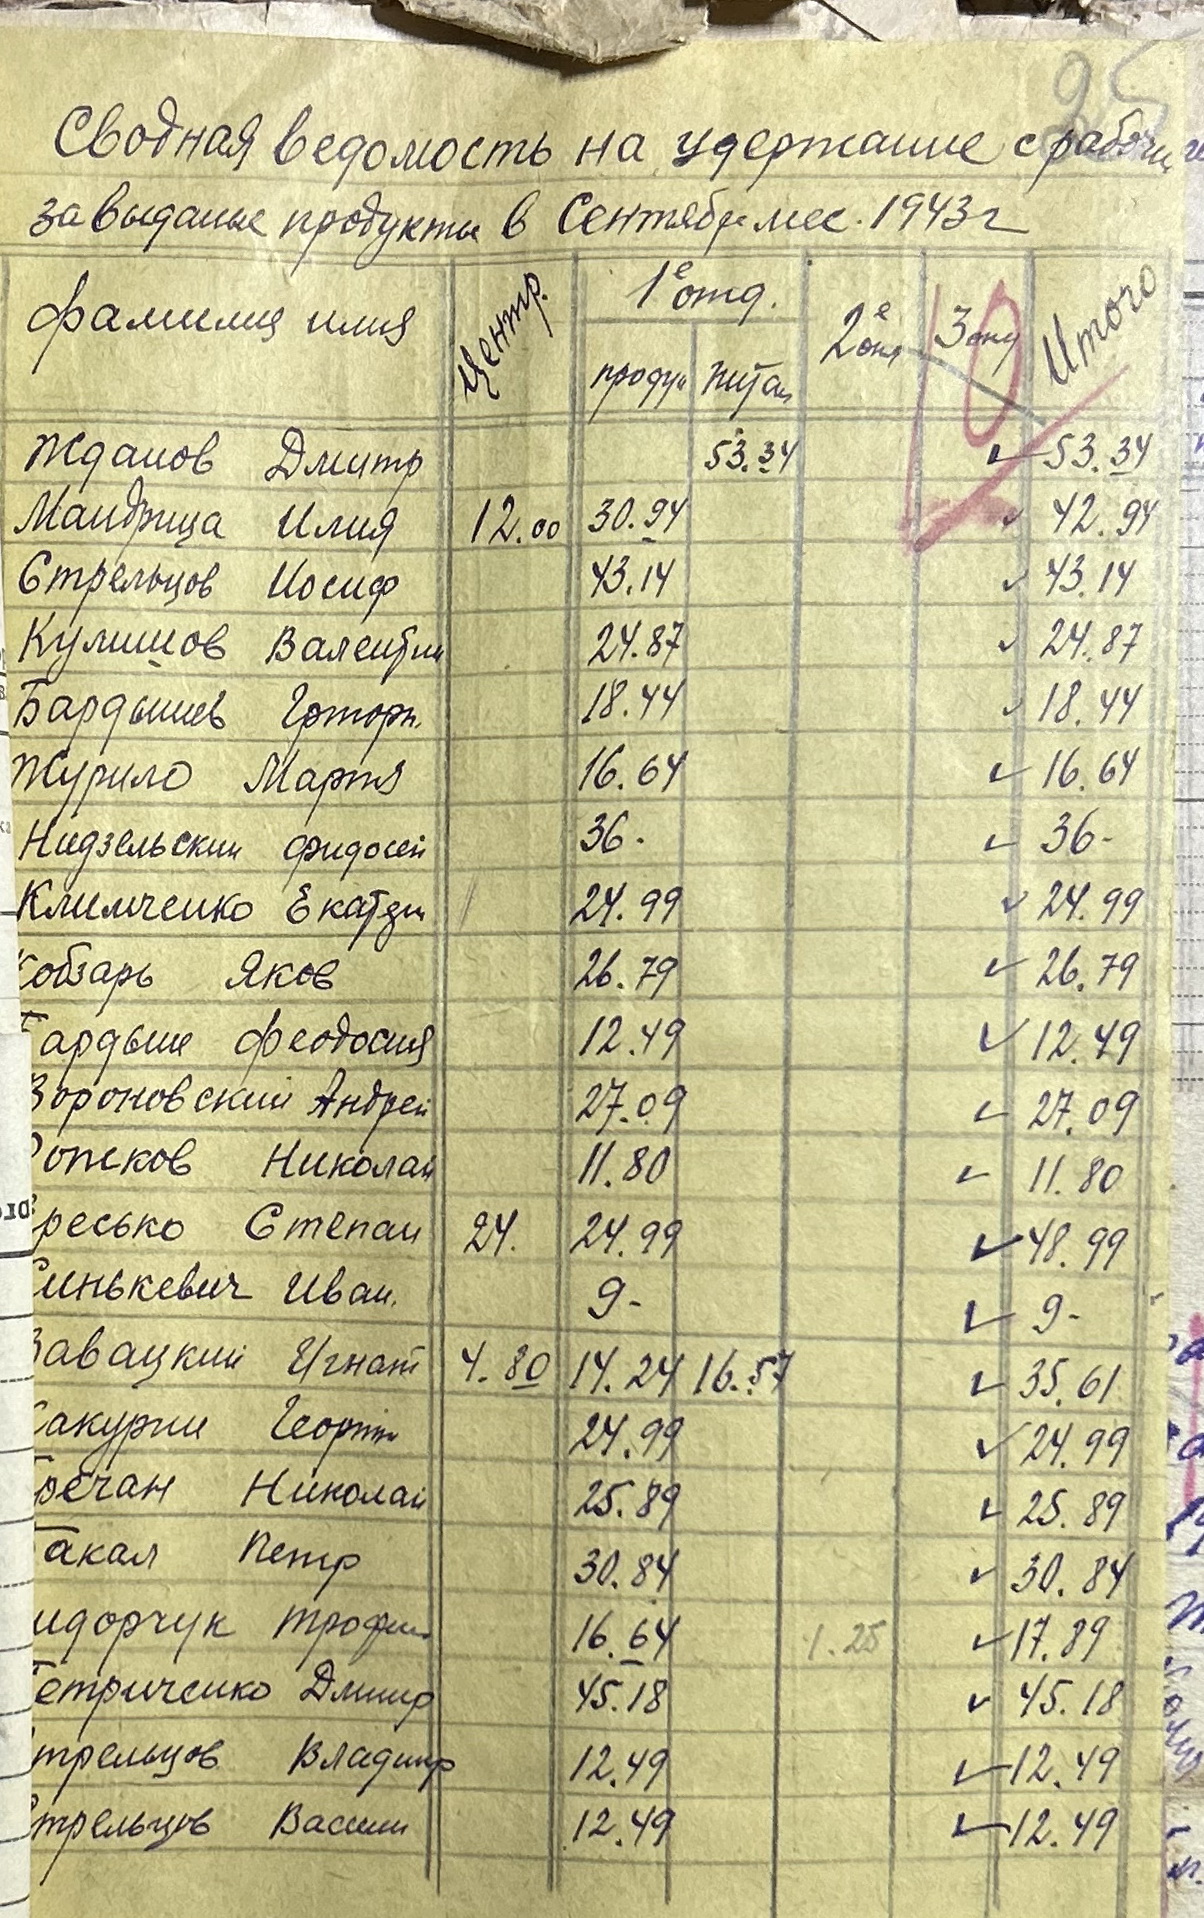 25
Сводная ведомость на удержание с рабочи
за выданые продукты в Сентябре мес. 1943 г
фамилия имя Центр. 1е отд. 2е 3 Итого
продук питан
Жданов Дмитр 53.34 53.34
Мандрица Илия 12.00 30.94 42.94
Стрельцов Иосиф 43.14 43.14
Кулишов Валентин 24.87 24.87
Бардышев 18.44 18.44
Журило Мария 16.64 16.64
Нидзельский Фидосей 36- 36-
Климченко Екатери 24.99 24.99
Кобзарь Яков 26.79 26.79
Бардыш Феодосия 12.49 12.49
Вороновский Андрей 27.09 27.09
ожков Николай 11.80 11.80
ресько Степан 24. 24.99 48.99
инькевич Иван. 9- 9-
Завацкий Игнат 4.80 14.24 16.57 35.61
Сакурин Георги 24.99 24.99
Гречан Николай 25.89 25.89
акал Петр 30.84 30.84
идорчук Трофим 16.64 1.25 17.89
Петриченко Дмитр 45.18 45.18
трельцов Владимир 12.49 12.49
трельцов Василий 12.49 12.49